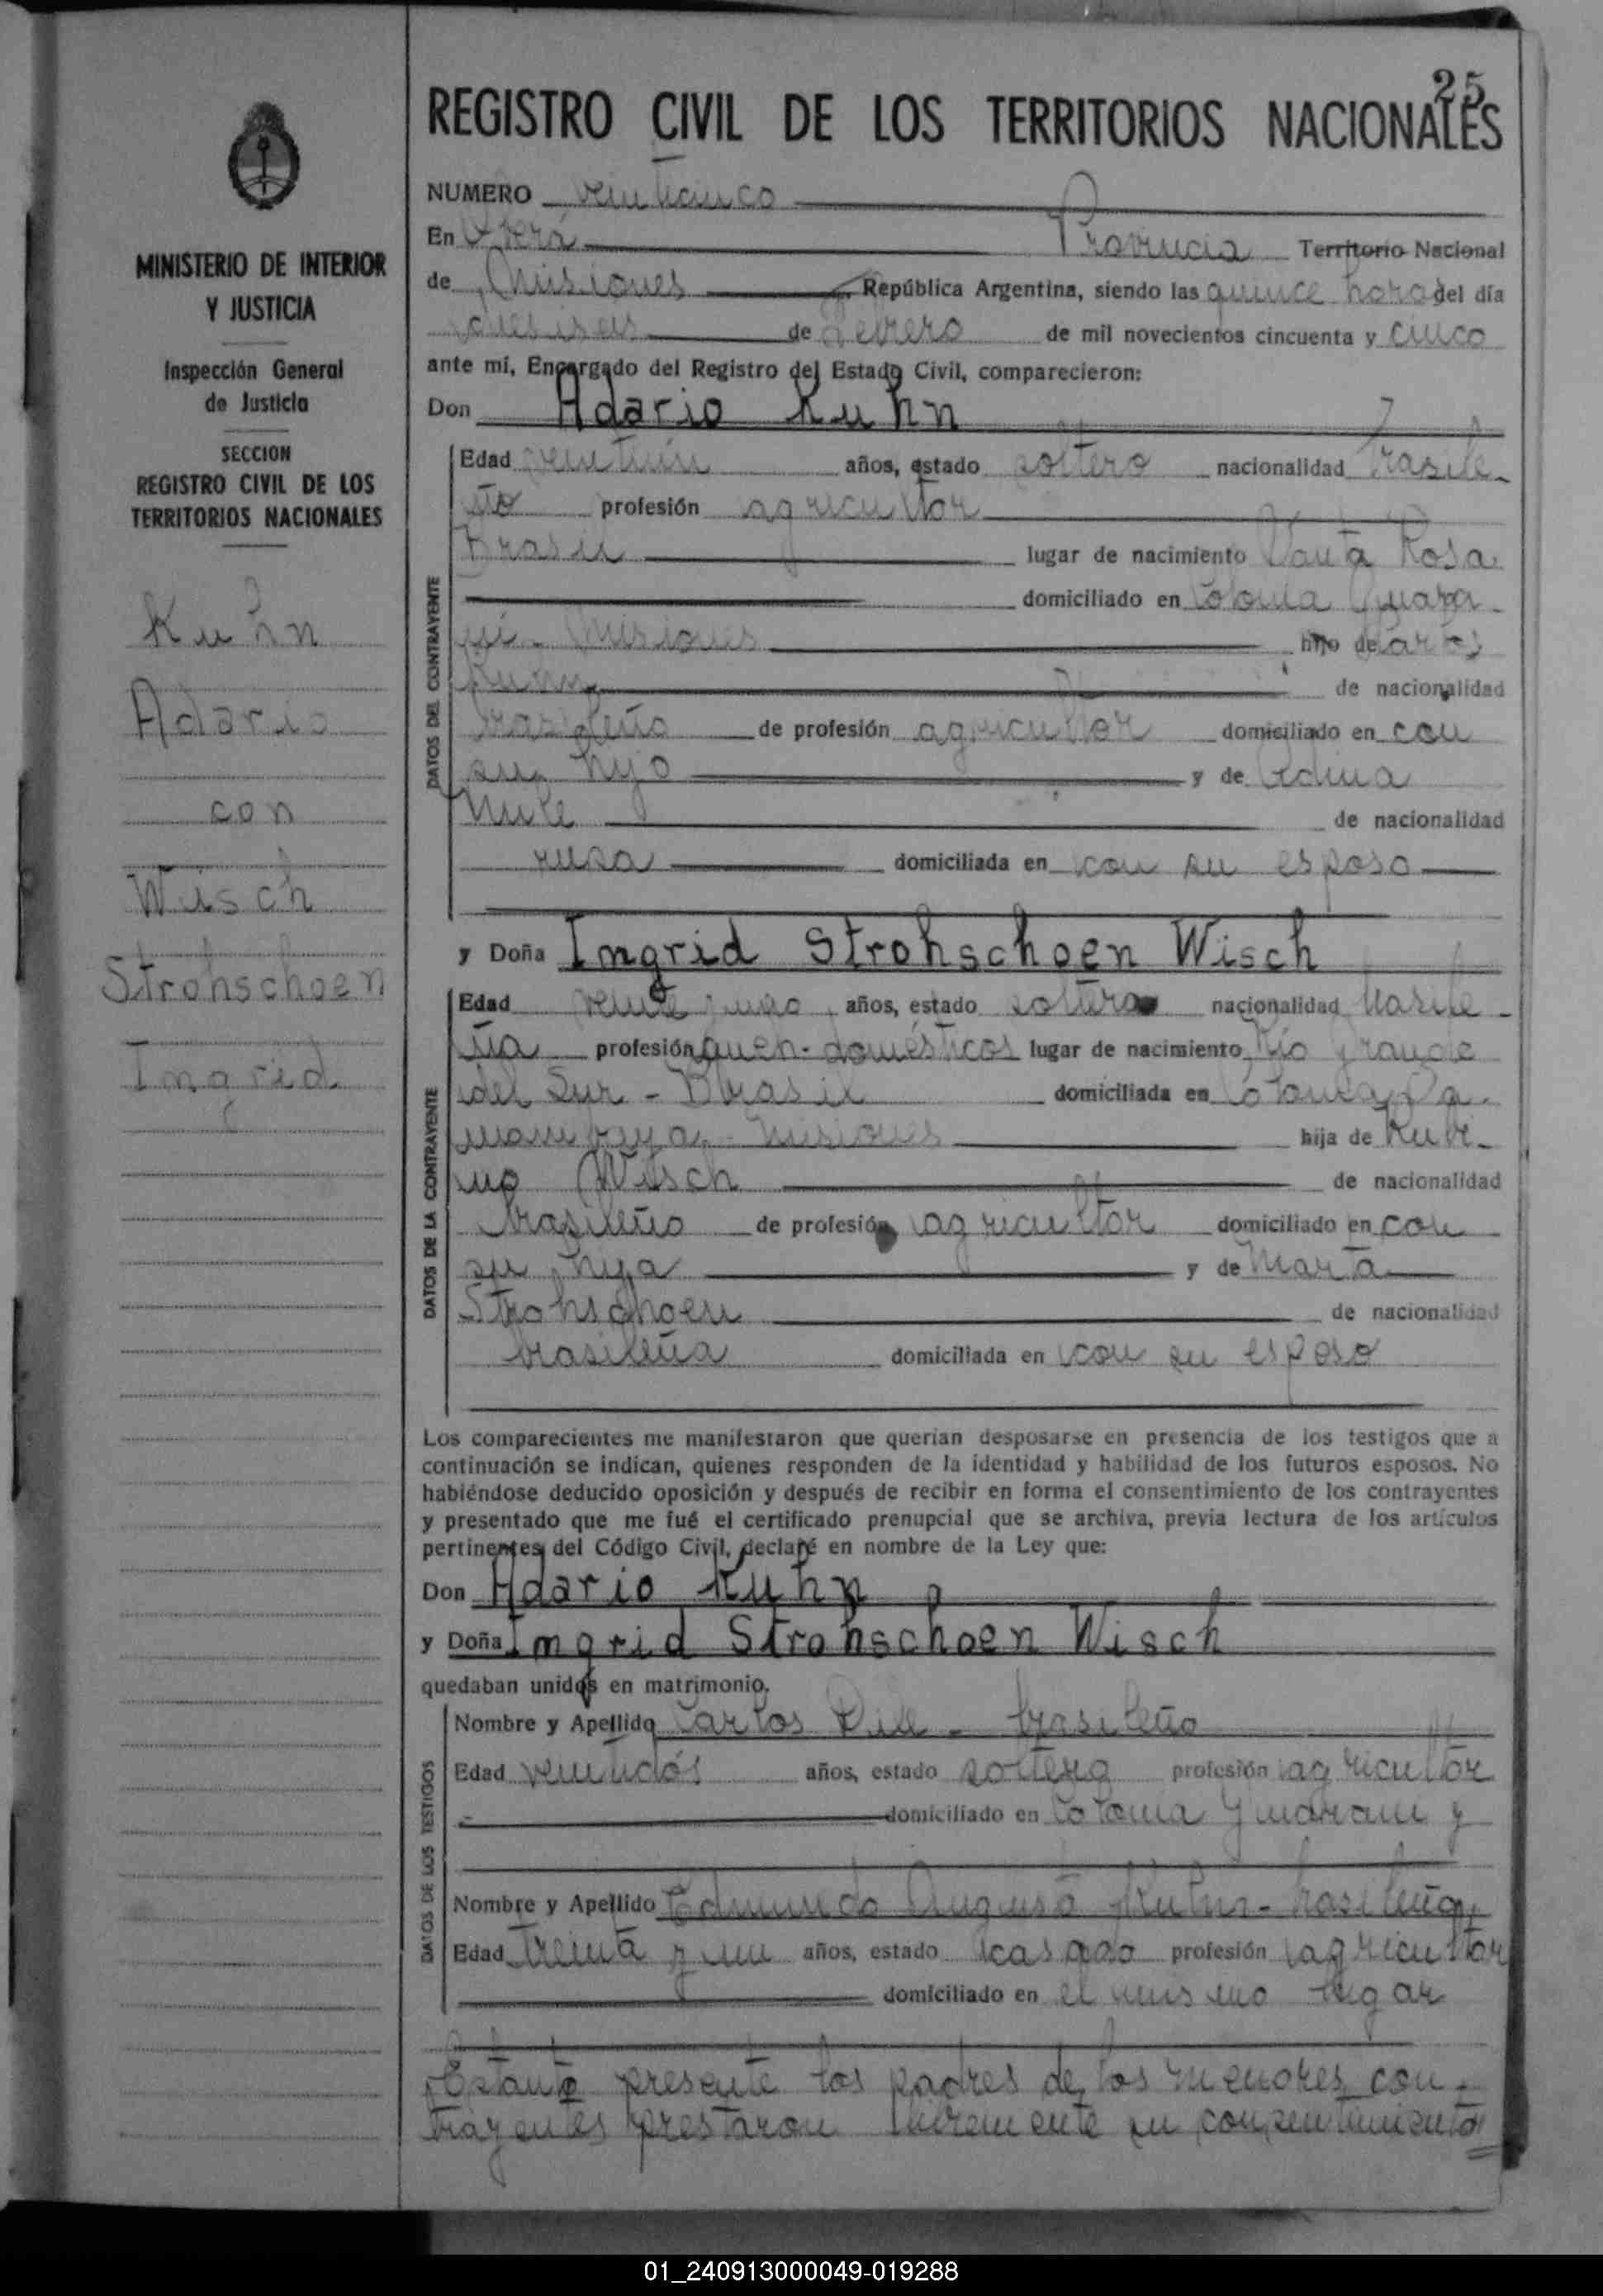 25
REGISTRO CIVIL DE LOS TERRITORIOS NACIONALES
NUMERO veinticinco
En Oberá Provincia Territorio Nacional
de Misiones República Argentina, siendo las quince horas del día
dieciseis de Febrero de mil novecientos cincuenta y cinco
ante mí, Encargado del Registro del Estado Civil, comparecieron:
Don Adario Kuhn
DATOS DEL CONTRAYENTE
Edad veintiún años, estado soltero nacionalidad brasile-
ño profesión agricultor
Brasil lugar de nacimiento Santa Rosa
domiciliado en Colonia Guara-
ní - Misiones hijo de Carlos
Kuhn de nacionalidad
brasileño de profesión agricultor domiciliado en con
su hijo y de
de nacionalidad
rusa domiciliada en con su esposo
y Doña Ingrid Strohschoen Wisch
DATOS DE LA CONTRAYENTE
Edad años, estado soltera nacionalidad brasile-
ña profesión queh. domésticos lugar de nacimiento Río Grande
del Sur - Brasil domiciliada en Colonia Pa-
nambaya - Misiones hija de Rubi-
no Wisch de nacionalidad
brasileño de profesión agricultor domiciliado en con
su hija y de Marta
Strohschoen de nacionalidad
brasileña domiciliada en con su esposo
Los comparecientes me manifestaron que querían desposarse en presencia de los testigos que a
continuación se indican, quienes responden de la identidad y habilidad de los futuros esposos. No
habiéndose deducido oposición y después de recibir en forma el consentimiento de los contrayentes
y presentado que me fué el certificado prenupcial que se archiva, previa lectura de los artículos
pertinentes del Código Civil, declaré en nombre de la Ley que:
Don Adario Kuhn
y Doña Ingrid Strohschoen Wisch
quedaban unidos en matrimonio.
DATOS DE LOS TESTIGOS
Nombre y Apellido Carlos Dill - brasileño
Edad veintidós años, estado soltero profesión agricultor
domiciliado en Colonia Guarani y
Nombre y Apellido Edmundo Augusto Kuhn - brasileño,
Edad treinta y un años, estado casado profesión agricultor
domiciliado en el mismo lugar
Estante presente los padres de los menores con-
trayentes prestaron libremente su consentimiento
MINISTERIO DE INTERIOR
Y JUSTICIA
Inspección General
de Justicia
SECCION
REGISTRO CIVIL DE LOS
TERRITORIOS NACIONALES
Kuhn
Adario
con
Wisch
Strohschoen
Ingrid
01_240913000049-019288